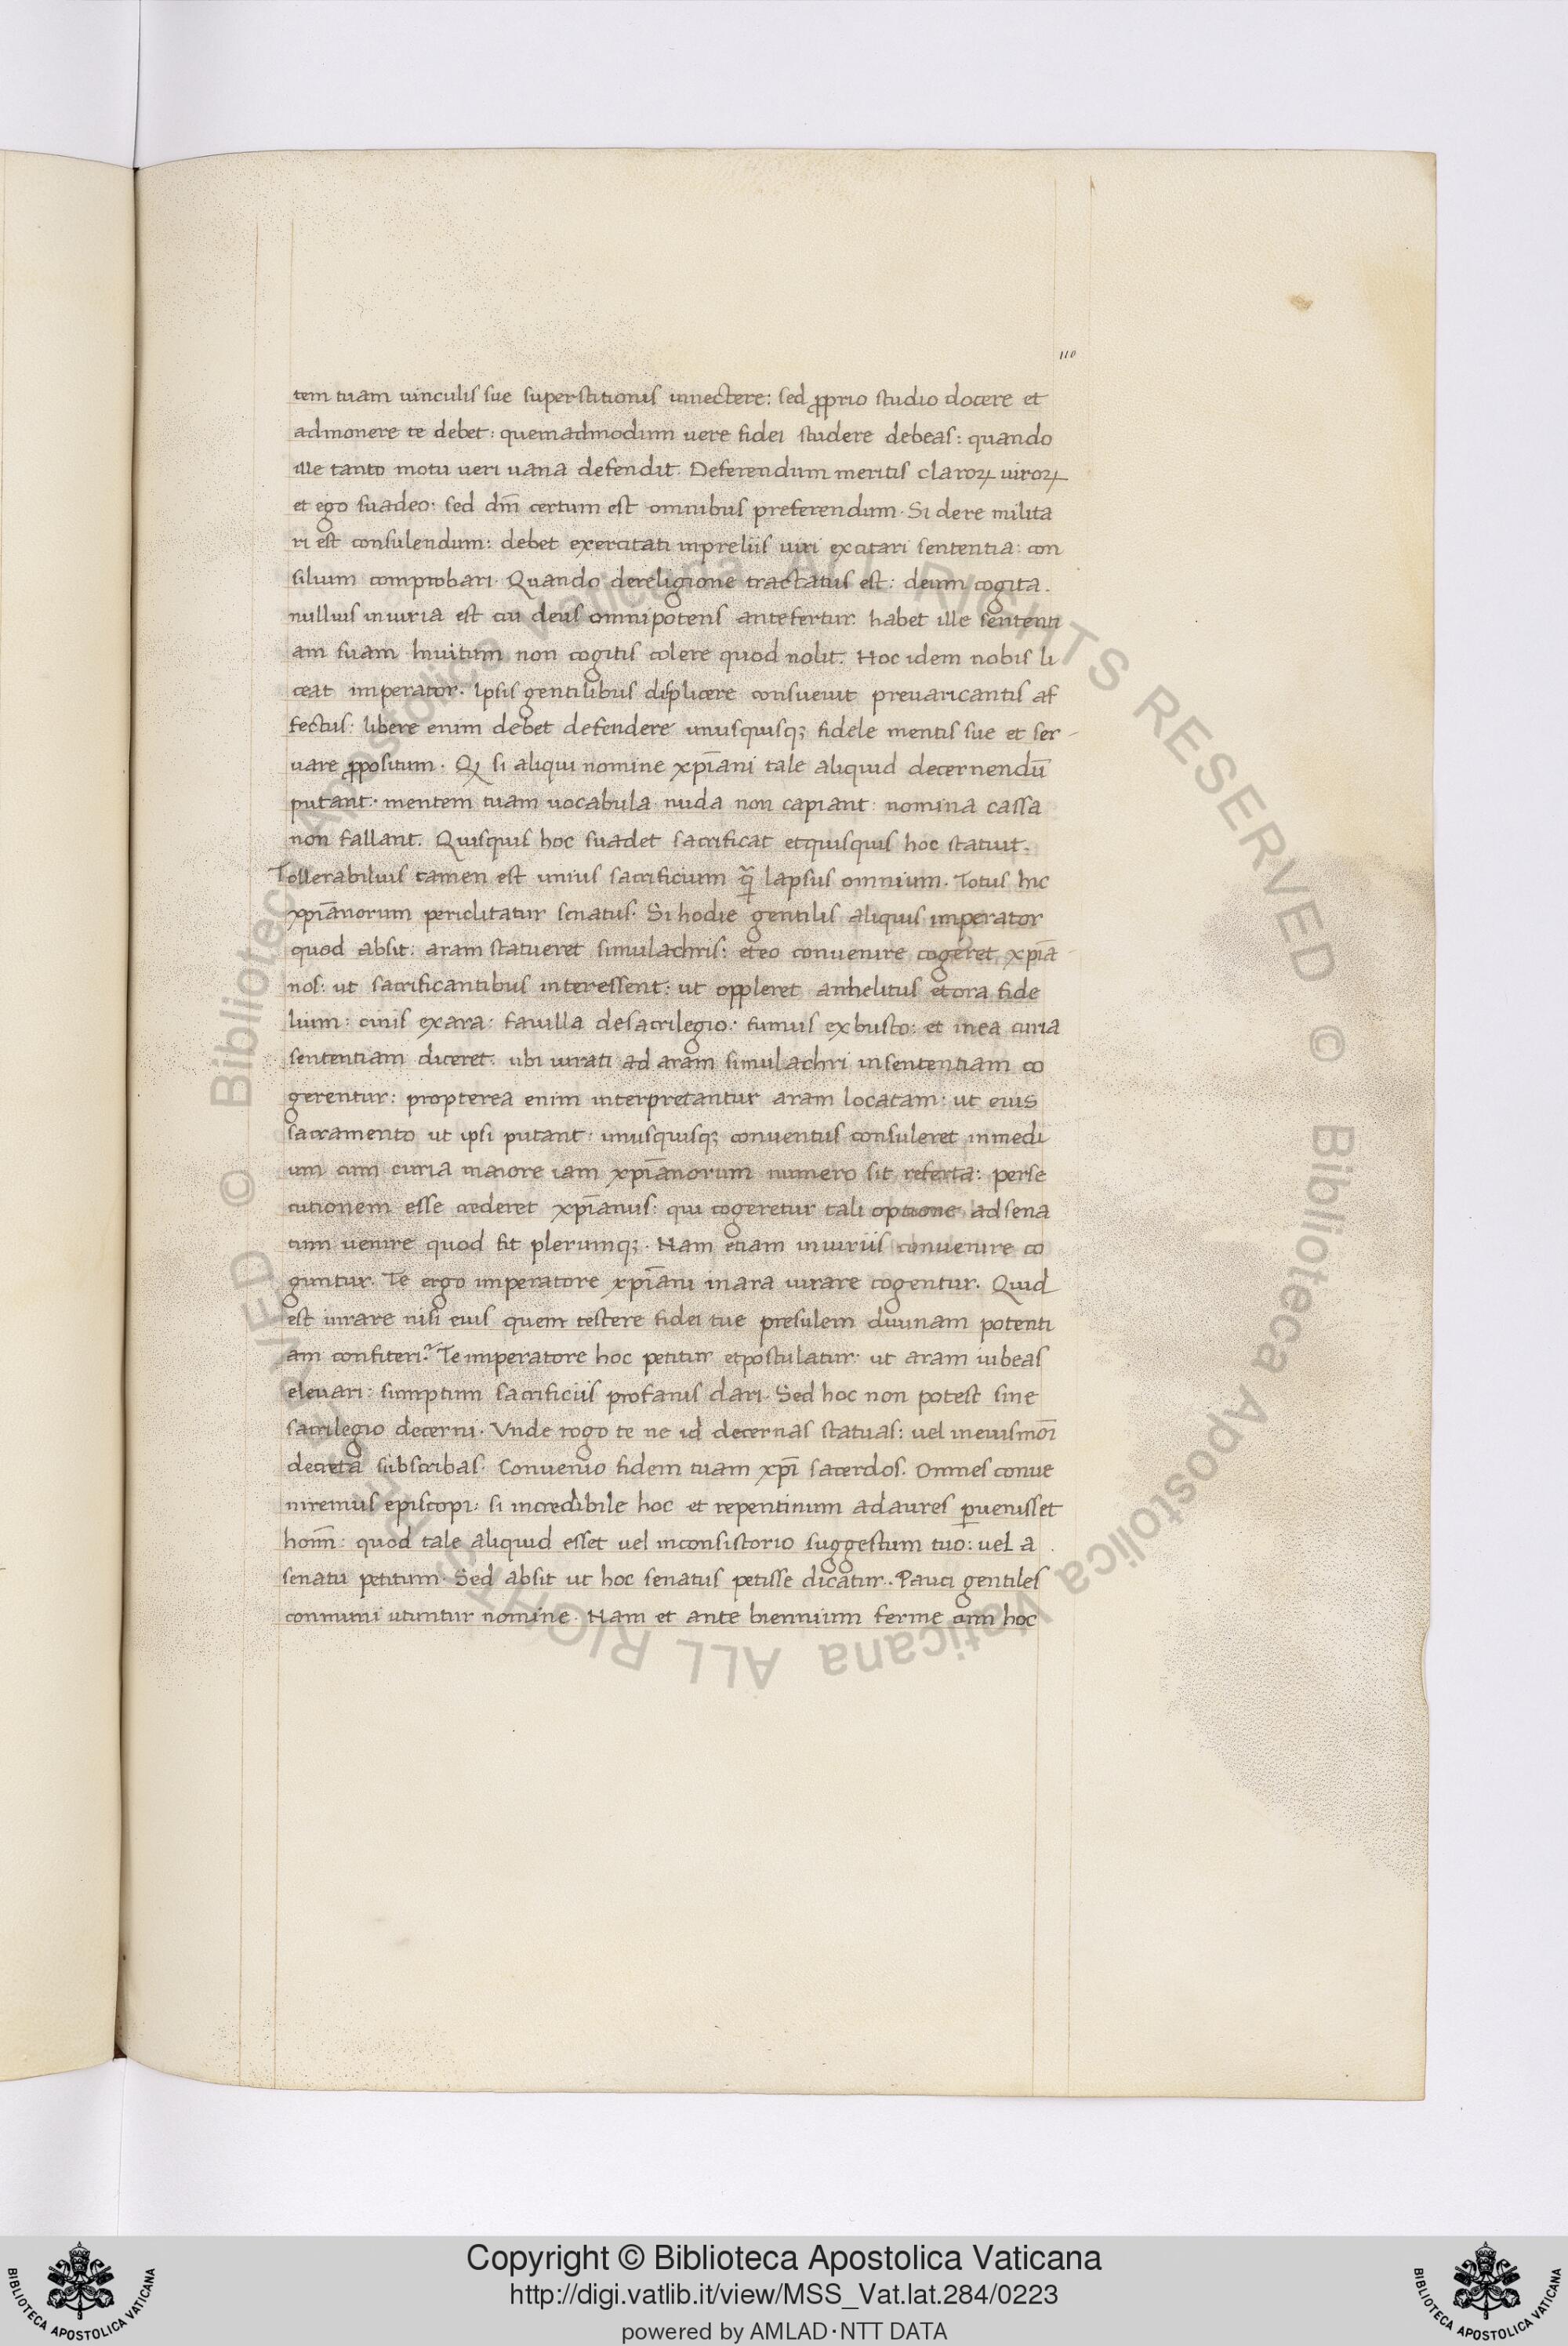 110
tem tuam uinculis sue superstitionis innectere: sed ꝓprio studio docere et
admonere te debet: quemadmodum uere fidei studere debeas: quando
ille tanto motu ueri uana defendit. Deferendum meritis claroꝝ uiroꝝ
et ego suadeo: sed dm̄ certum est omnibus preferendum. Si dere milita
ri est consulendum: debet exercitati inpreliis uiri excitari sententia: con
silium comprobari. Quando dereligione tractatus est: deum cogita.
nullius iniuria est cui deus omnipotens antefertur. habet ille sententi
am suam Inuitum non cogitis colere quod nolit. Hoc idem nobis li
ceat imperator. Ipsis gentilibus displicere consueuit preuaricantis af
fectus: libere enim debet defendere unusquisq; fidele mentis sue et ser-
uare ꝓpositum. Qꝫ si aliqui nomine xp̄iani tale aliquid decernendū
putant: mentem tuam uocabula nuda non capiant: nomina cassa
non fallant. Quisquis hoc suadet sacrificat etquisquis hoc statuit.
Tollerabilius tamen est unius sacrificium q̄ lapsus omnium. Totus hic
xp̄ianorum periclitatur senatus. Si hodie gentilis aliquis imperator
quod absit: aram statueret simulachris: eteo conuenire cogeret xp̄ia-
nos: ut sacrificantibus interessent: ut oppleret anhelitus etora fide
lium: cinis exara: fauilla desacrilegio: fumus exbusto: et inea curia
sententiam diceret. ubi iurati ad aram simulachri insententiam co
gerentur: propterea enim interpretantur aram locatam: ut eius
sacramento ut ipsi putant: unusquisq; conuentus consuleret inmedi
um cum curia maiore iam xp̄ianorum numero sit referta: perse
cutionem esse crederet xp̄ianus: qui cogeretur tali optione adsena
tum uenire quod fit plerumq;. Nam etiam iniuriis conuenire co
guntur. Te ergo imperatore xp̄iani inara iurare cogentur. Quid
est iurare nisi eius quem testere fidei tue presulem diuinam potenti
am confiteri? Te imperatore hoc petitur etpostulatur: ut aram iubeas
eleuari: sumptum sacrificiis profanis dari. Sed hoc non potest sine
sacrilegio decerni. Vnde rogo te ne id decernas statuas: uel ineiusmōi
decreta subscribas. Conuenio fidem tuam xp̄i sacerdos. Omnes conue
niremus episcopi: si incredibile hoc et repentinum adaures ꝑuenisset
hoīm: quod tale aliquid esset uel inconsistorio suggestum tuo: uel a
senatu petitum. Sed absit ut hoc senatus petisse dicatur. Pauci gentiles
communi utuntur nomine. Nam et ante biennium ferme cum hoc
© Biblioteca Apostolica Vaticana ALL RIGHTS RESERVED © Biblioteca Apostolica Vaticana ALL RIGHTS RESERVED
Copyright © Biblioteca Apostolica Vaticana
http://digi.vatlib.it/view/MSS_Vat.lat.284/0223
powered by AMLAD·NTT DATA
BIBLIOTECA APOSTOLICA VATICANA
BIBLIOTECA APOSTOLICA VATICANA